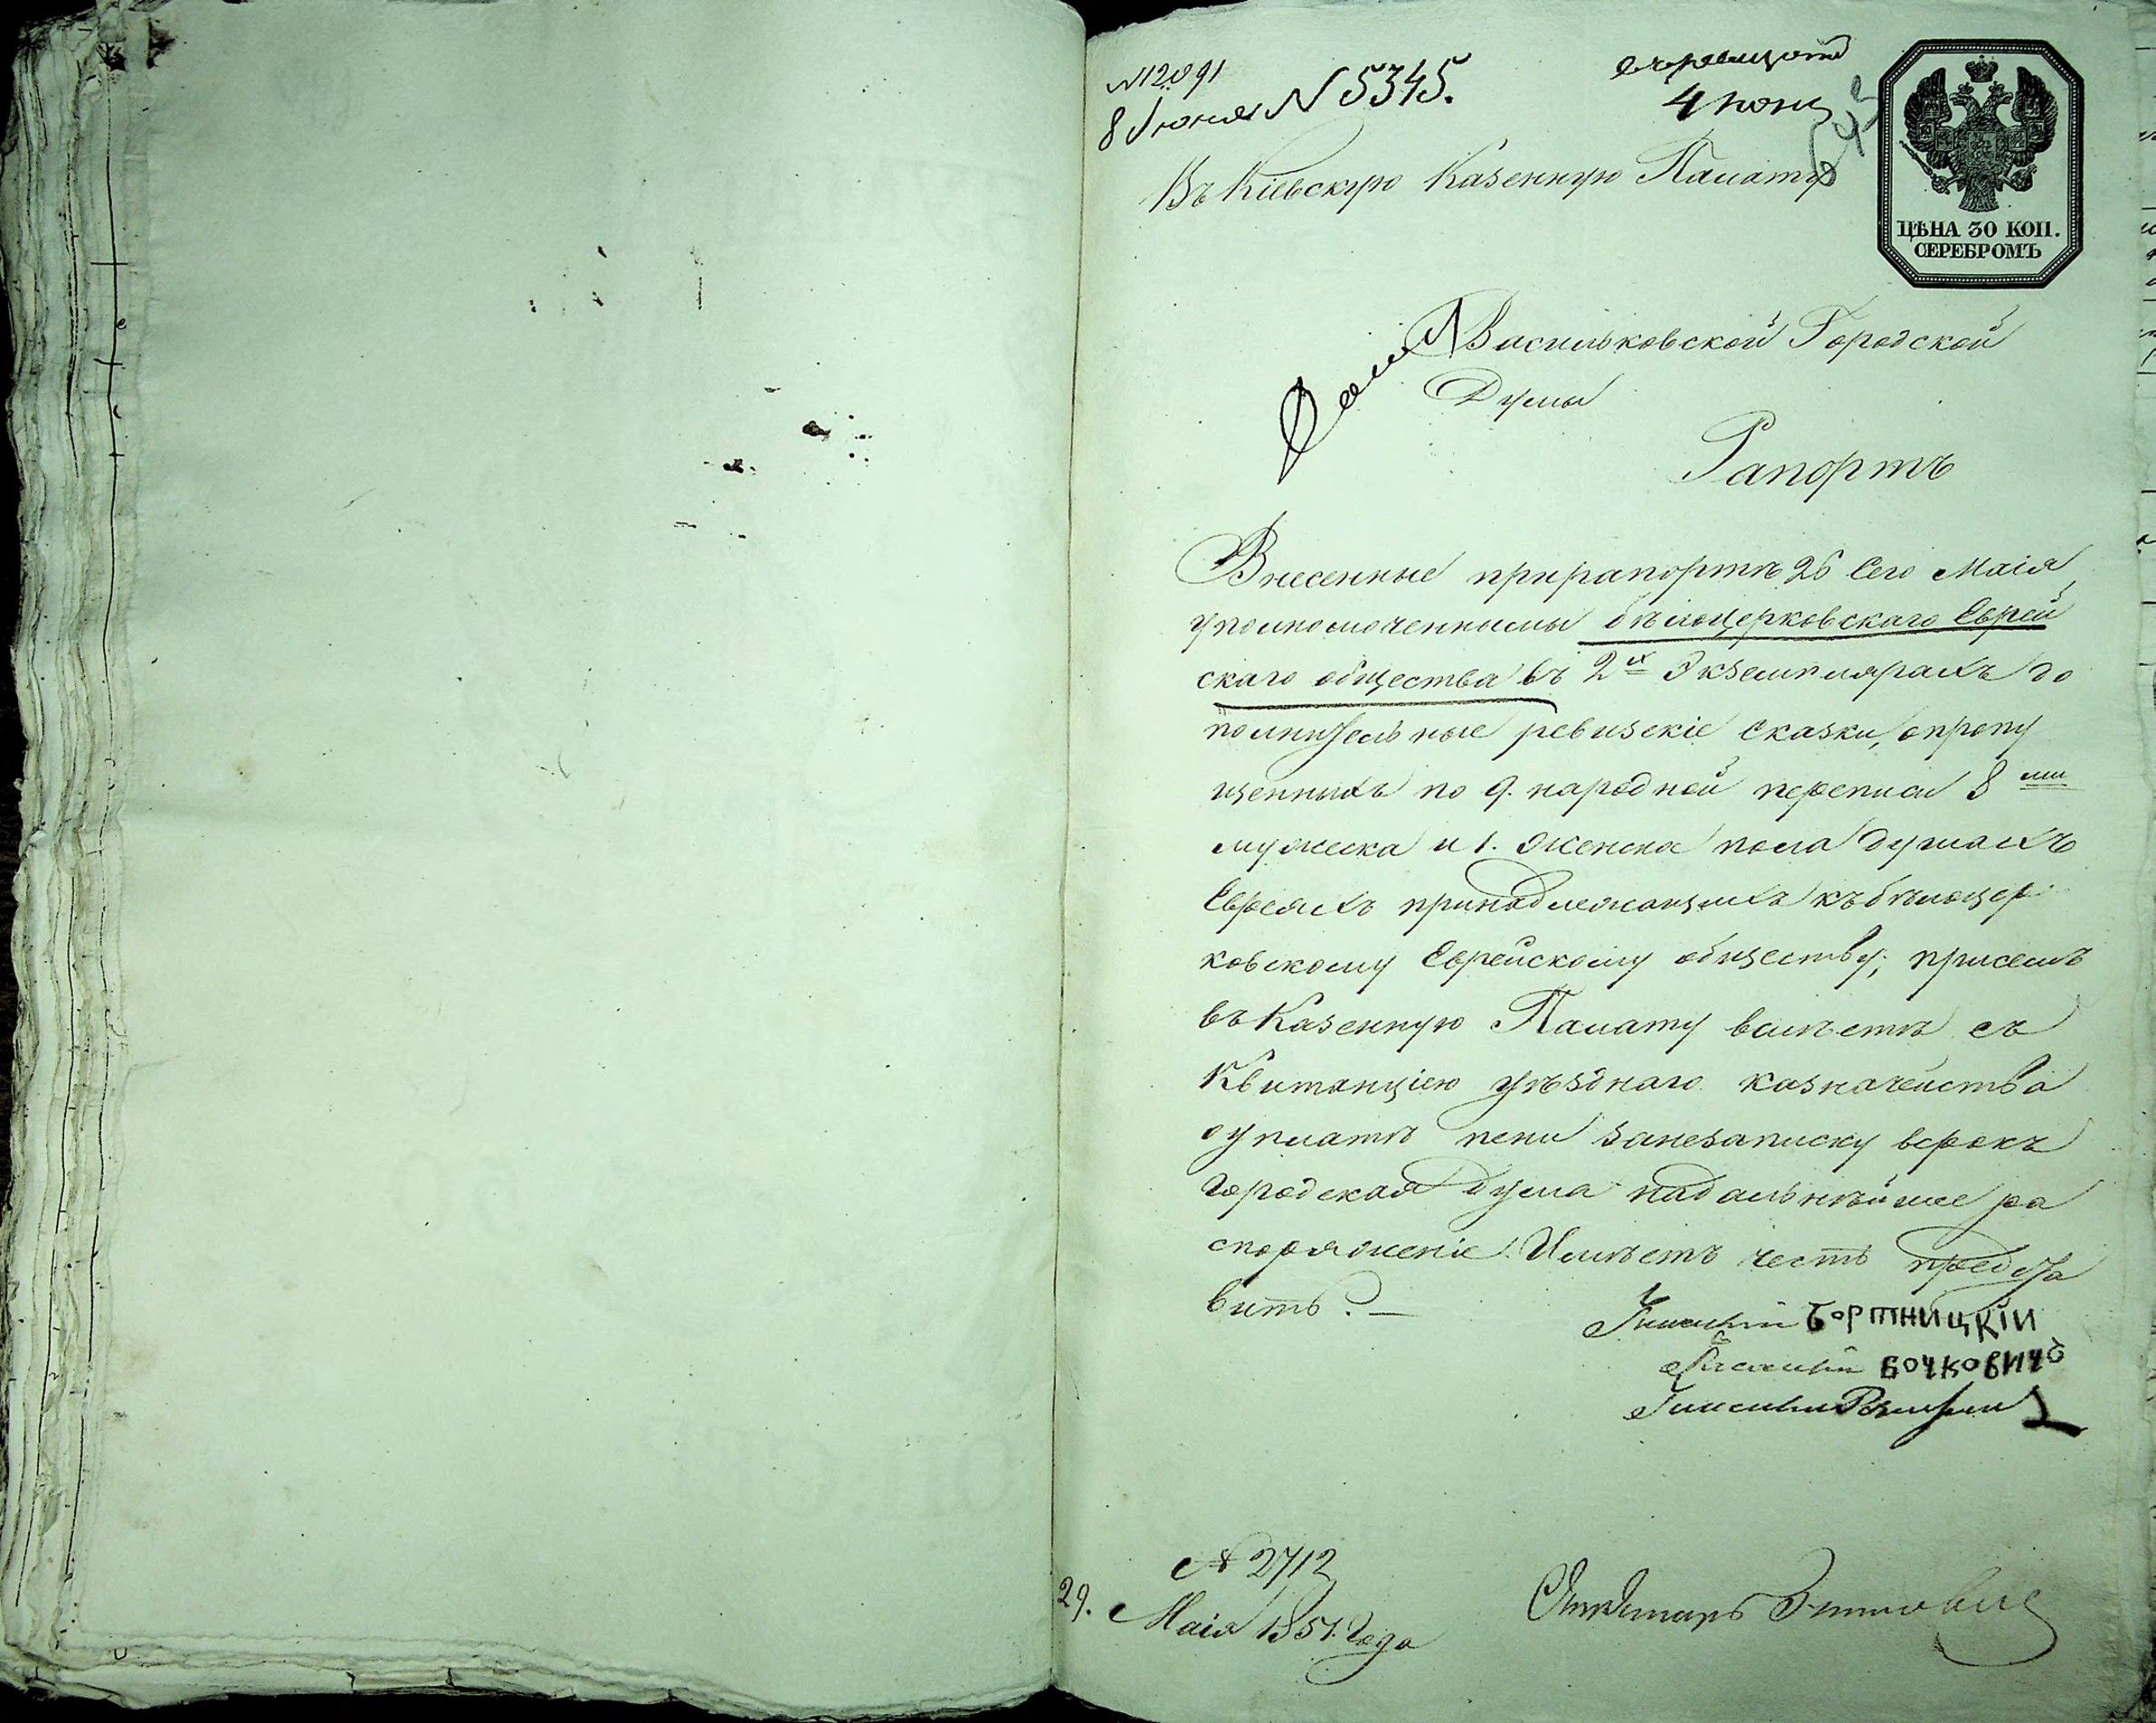 № 12091
8 Июня № 5345.
4 Июня
Въ Кіевскую Казенную Палату
ЦѢНА 30 КОП.
СЕРЕБРОМЪ
Васильковской Городской
Думы
Рапортъ
Внесенные прирапортѣ 26 Сего Маія
уполномоченнымы бѣлоцерковскаго Еврей
скаго общества въ 2х Экземплярахъ до
полнительные ревизскіе Сказки, опропу
щенныхъ по 9. народной переписи 8ми
мужеска и 1. женска пола душахъ
Евреяхъ принадлежащихъ къ бѣлоцер
ковскому Еврейскому обществу; присемъ
въ Казенную Палату вмѣстѣ съ
Квитанціею уѣзднаго казначейства
оуплатѣ пени занезаписку всрокъ
Городская Дума надальнѣйшее ра
споряженіе Имѣетъ честь предста
вить. —
Гласный Бортницкій
Гласный Бочковичъ
Гласный
№ 2712
29.
Маія 1851. Года